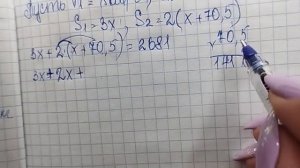 Пусть V1 =
S₁ = 3x, S₂ = 2(x+70,5)
3x+2(x+70,5) = 2681
70,5
3x+2x+
141